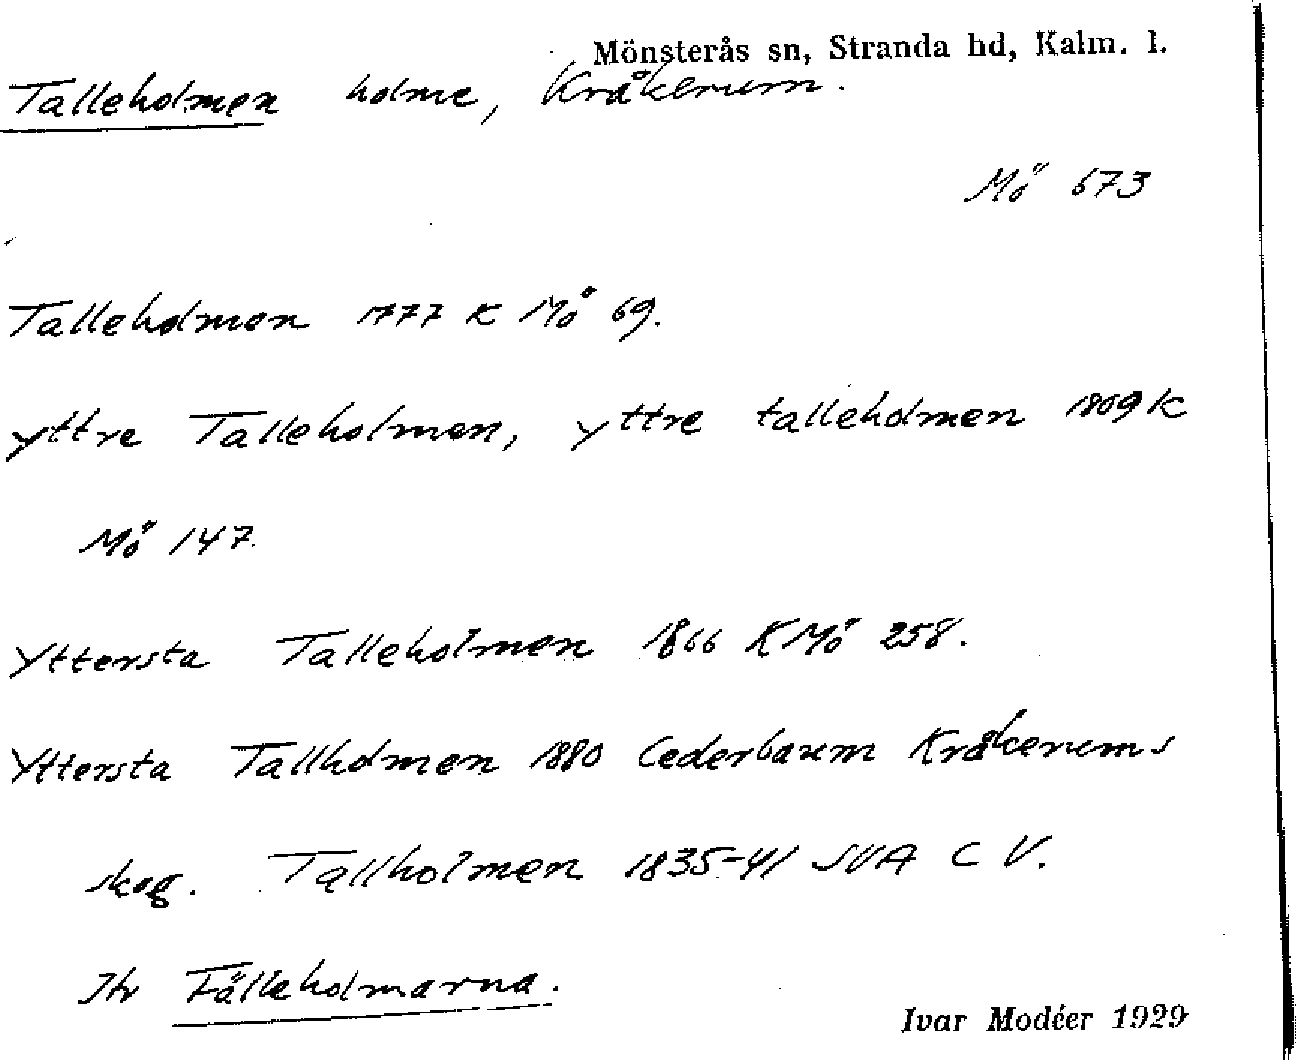 Mönsterås sn, Stranda hd, Kalm. l.
Talleholmen holme, Kråkerum.
Mö 673
Talleholmen 1777 K Mö 69.
yttre Talleholmen, yttre talleholmen 1809 K
Mö 147.
Yttersta Talleholmen 1866 K Mö 258.
Yttersta Tallholmen 1880 Cederbaum Kråkerums
skog. Tallholmen 1835-41 SVA C V.
Jfr Fälleholmarna.
Ivar Modéer 1929